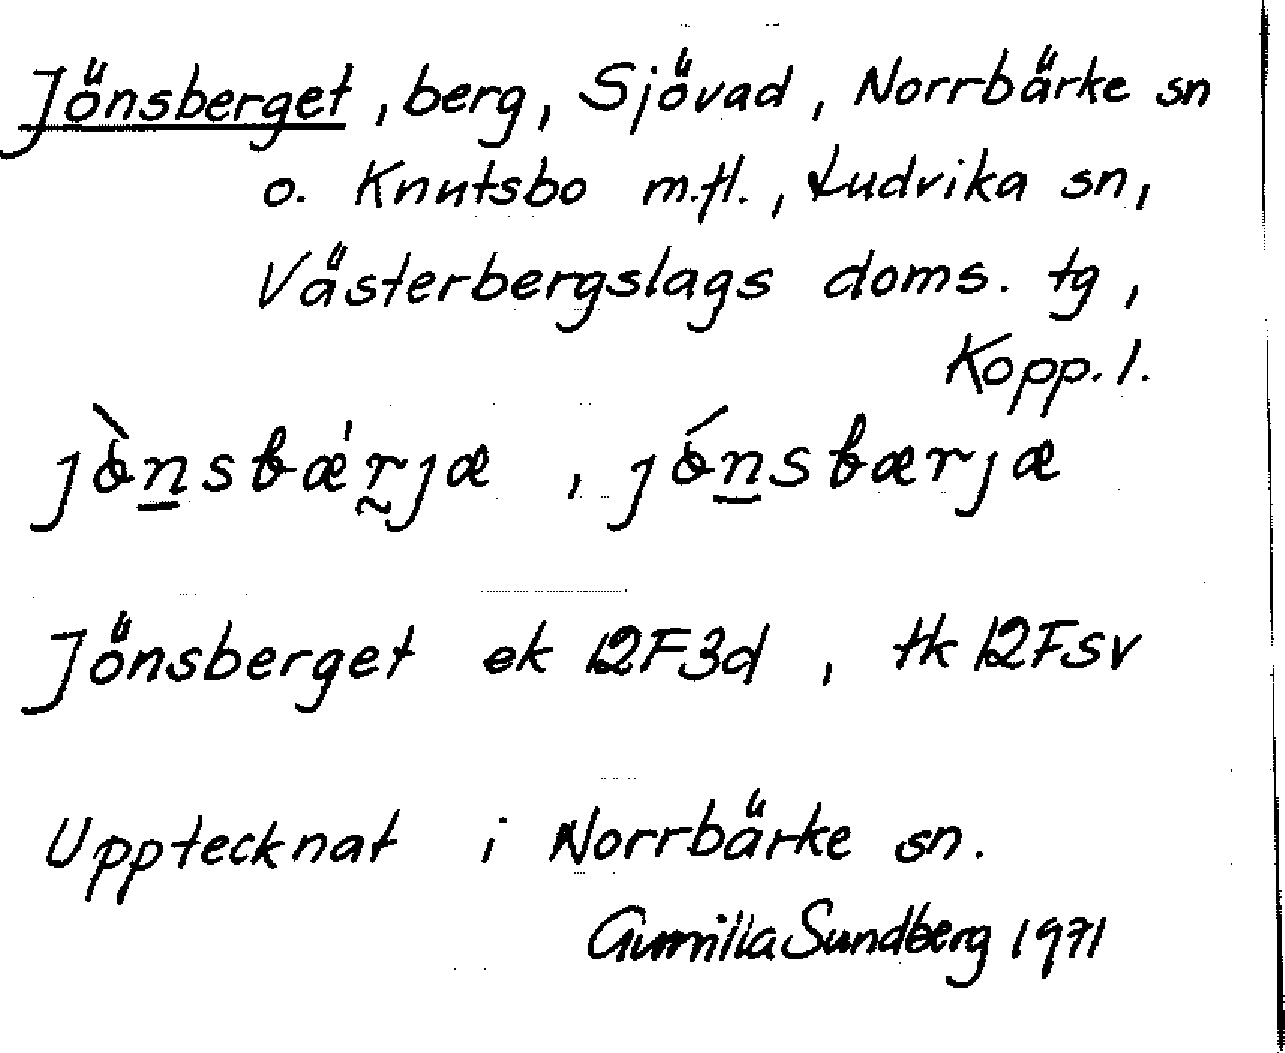 Jönsberget, berg, Sjövad, Norrbärke sn
o. Knutsbo m.fl., Ludvika sn,
Västerbergslags doms. tg,
Kopp. l.
Jönsberget ek 12F3d, tk 12Fsv
Upptecknat i Norrbärke sn.
Gunilla Sundberg 1971